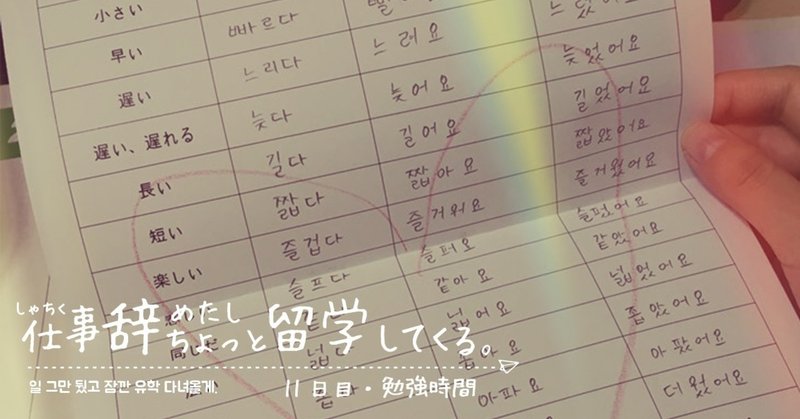 小さい
早い 빠르다
遅い 느리다 느려요
遅い、遅れる 늦다 늦어요 늦었어요
長い 길다 길어요 길었어요
短い 짧다 짧아요 짧았어요
楽しい 즐겁다 즐거워요 즐거웠어요
슬프다 슬퍼요 슬펐어요
같아요 같았어요
넓다 넓어요 넓었어요
좁았어요
아파요 아팠어요
더웠어요
しゃちく
仕事辞めたし
ちょっと留学してくる。
일 그만 뒀고 잠깐 유학 다녀올게.
11日目・勉強時間